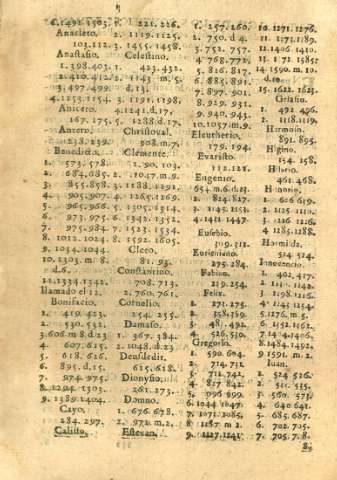 6.1492.1503.
Anacleto.
103.112.
Anastasio.
1. 398.403.
2. 410.412.
3. 497.499.
4. 1153.1154.
Aniceto.
167. 175.
Antero.
238.239.
Benedicto.
1. 573. 578.
2. 684. 685.
3. 855.858.
4. 905.907.
5. 965.966.
6. 973. 975.
7. 975.984.
8. 1012. 1024.
9. 1034. 1044.
10. 1303. m. 8
d.6.
11.1334.1342.
llamado el 12.
Bonifacio.
1. 419.423.
2. 530. 532.
3. 606. m 8 d 23
4. 607. 615.
5. 618. 626.
6. 895. d. 15.
7. 974. 975.
8. 1294. 1303.
9. 1389. 1404.
Cayo.
284. 297.
Calisto.
1. 221. 226.
2. 1119. 1125.
3. 1455. 1458.
Celestino.
1. 423. 432.
2. 1143 m. 5.
d. 13.
3. 1191. 1198.
4. 1241. d. 17.
5. 1288 d. 17.
Christoval.
908. m. 7.
Clemente.
1. 90. 103.
2. 1047. m. 9.
3. 1188. 1191.
4. 1265. 1269.
5. 1305. 1314.
6. 1342. 1352.
7. 1523. 1534.
8. 1592. 1605.
Cleto.
81. 93.
Constantino.
708. 713.
2. 760. 761.
Cornelio.
254. 255.
Damaso.
1. 367. 384.
2. 1048. d. 23.
Deusdedit.
615. 618.
Dionysio.
261. 273.
Domno.
1. 676. 678.
2. 972. m. 2.
Estevan.
1. 257. 260.
2. 750. d. 4.
3. 752. 757.
4. 768. 772.
5. 816. 817.
6. 885. 891.
7. 897. 901.
8. 929. 931.
9. 940. 943.
10. 1057. m. 9.
Eleutherio.
179. 194.
Evaristo.
112. 121.
Eugenio.
654 m. 6 d. 23.
2. 824. 827.
3. 1145. 1153.
4. 1431. 1447
Eusebio.
309. 311.
Eutichiano.
275. 284.
Fabiano.
219. 254.
Felix.
1. 271. 275.
2. 358. 359.
3. 481. 492.
4. 526. 530.
Gregorio.
1. 590. 604.
2. 714. 731.
3. 731. 742.
4. 827. 842.
5. 996. 999.
6. 1044. 1047.
7. 1073. 1085.
8. 1187. m. 2.
9. 1227. 1241.
10. 1271. 1276.
11. 1173. 1189.
12. 1406. 1410.
13. 1572. 1585.
14. 1590. m. 10.
d. 10.
15. 1622. 1623.
Gelasio.
1. 492. 496.
2. 1118. 1119.
Hermoso.
891. 895.
Higino.
154. 158.
Hilario.
461. 468.
Honorio.
1. 626. 639.
2. 1125. 1130.
3. 1216. 1226.
4. 1285. 1288.
Hormisda.
514. 524.
Innocencio.
1. 402. 417.
2. 1130. 1143.
3. 1198. 1216.
4. 1243. 1254.
5. 1276. m. 5.
6. 1352. 1362.
7. 1404. 1406.
8. 1484. 1492.
9. 1591. m. 2.
Iuan.
1. 524. 526.
2. 532. 535.
3. 560. 573.
4. 640. 641.
5. 685. 687.
6. 702. 705.
7. 705. 7. 8.
8.